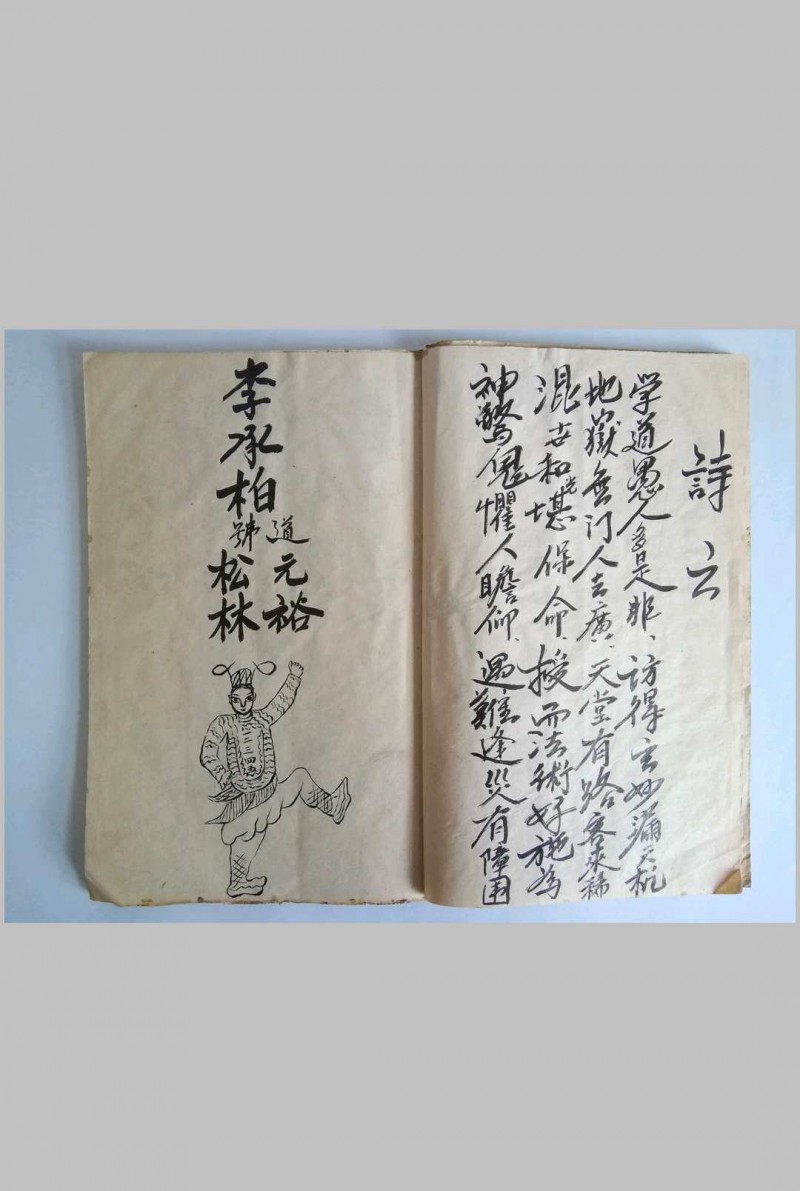 詩云
学道愚人多是非、訪得玄妙漏天机
地獄無门人去廣、天堂有路客來稀
混世和光堪保命、授而法術好施為
神驚鬼懼人瞻仰、遇難逢災有障围
李承柏
道號
元裕
松林
三三四五